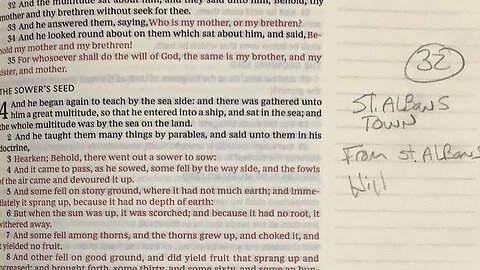 32 And the multitude sat about him, and they said unto him, Behold, thy
mother and thy brethren without seek for thee.
33 And he answered them, saying, Who is my mother, or my brethren?
34 And he looked round about on them which sat about him, and said, Be-
hold my mother and my brethren!
35 For whosoever shall do the will of God, the same is my brother, and my
sister, and mother.
THE SOWER'S SEED
4 And he began again to teach by the sea side: and there was gathered unto
him a great multitude, so that he entered into a ship, and sat in the sea; and
the whole multitude was by the sea on the land.
2 And he taught them many things by parables, and said unto them in his
doctrine,
3 Hearken; Behold, there went out a sower to sow:
4 And it came to pass, as he sowed, some fell by the way side, and the fowls
of the air came and devoured it up.
5 And some fell on stony ground, where it had not much earth; and imme-
diately it sprang up, because it had no depth of earth:
6 But when the sun was up, it was scorched; and because it had no root, it
withered away.
7 And some fell among thorns, and the thorns grew up, and choked it, and
it yielded no fruit.
8 And other fell on good ground, and did yield fruit that sprang up and
increased; and brought forth, some thirty, and some sixty, and some an hun-
32
ST. ALBANS
TOWN
From St. ALBANS
Hill